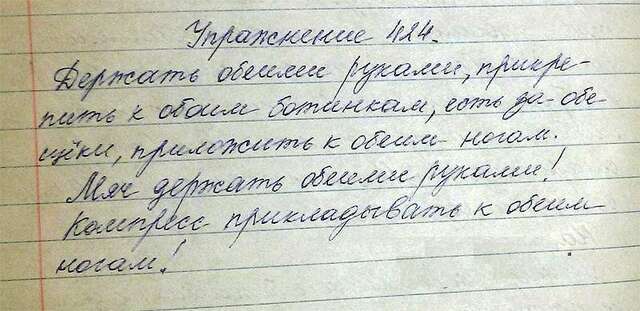 Упражнение 424.
Держать обеими руками, прикре-
пить к обоим ботинкам, есть за обе
щёки, приложить к обеим ногам.
Мяч держать обеими руками!
Компресс прикладывать к обеим
ногам!